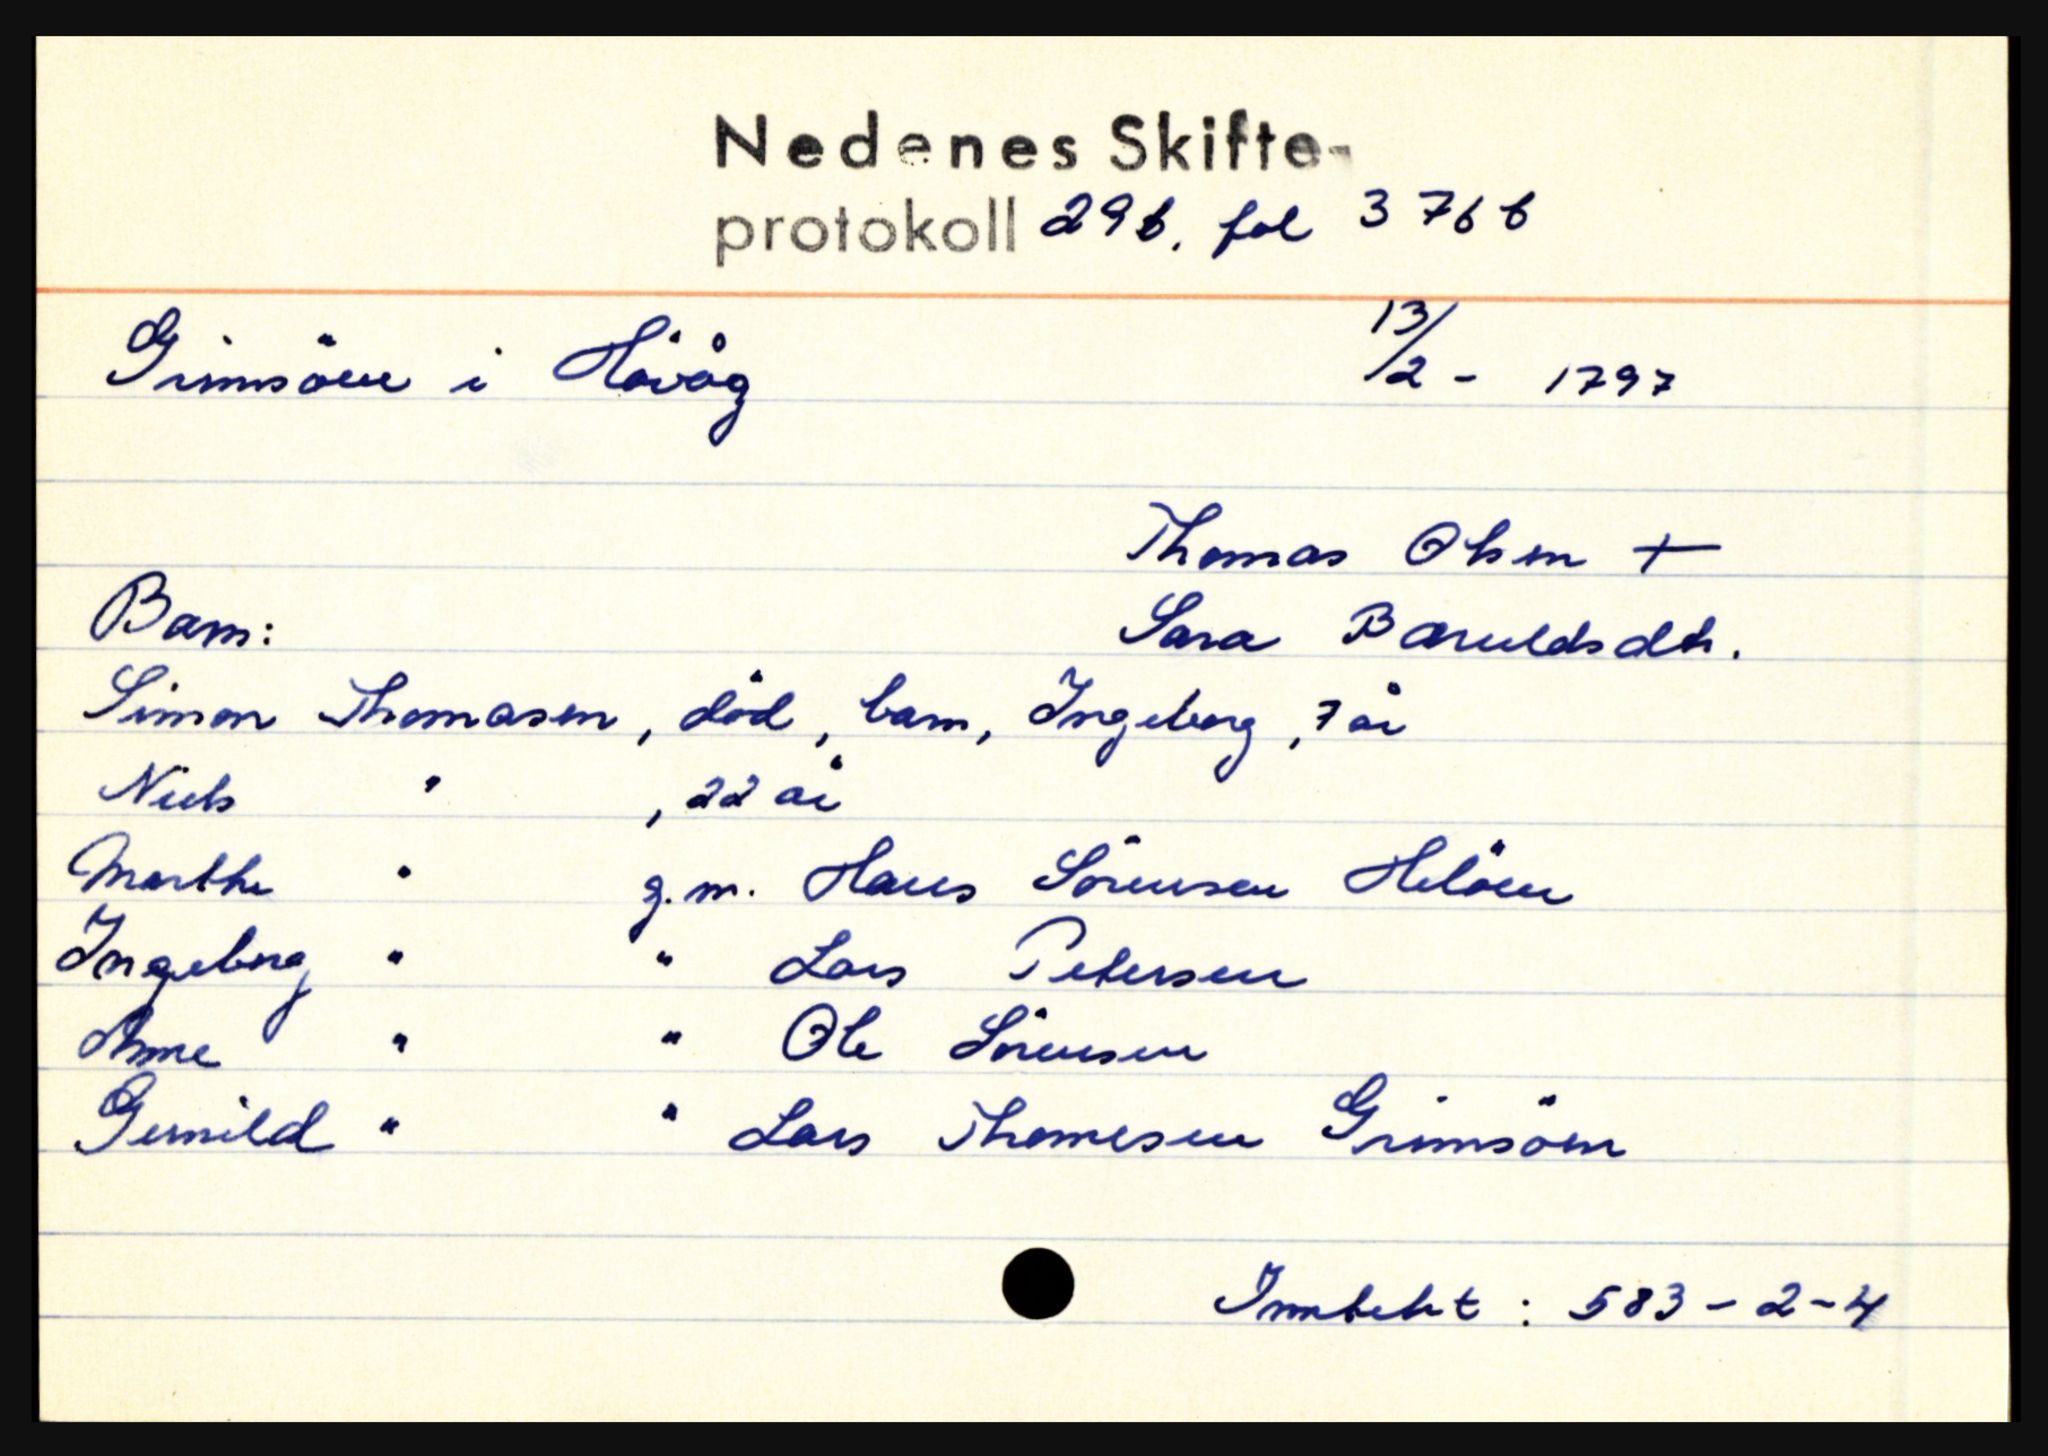 Nedenes Skifte-
protokoll 29b. fol 376b
Grimsöen i Hövåg 13/2 - 1797
Thomas Olsen +
Barn: Sara Baruldsdtr.
Simon Thomasen, död, barn, Ingeborg, 7 år
Niels " , 22 år
Marthe " g.m. Hans Sörensen Helöen
Ingeborg " " Lars Petersen
Anne " " Ole Sörensen
Gunild " " Lars Thomesen Grimsöen
Inntekt : 583-2-4